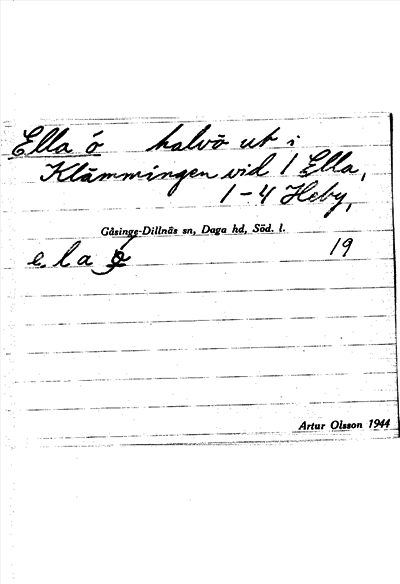 Ella ö halvö ut i
Klämmingen vid 1 Ella,
1-4 Heby,
Gåsinge-Dillnäs sn, Daga hd, Söd. l.
e l a 19
Artur Olsson 1944